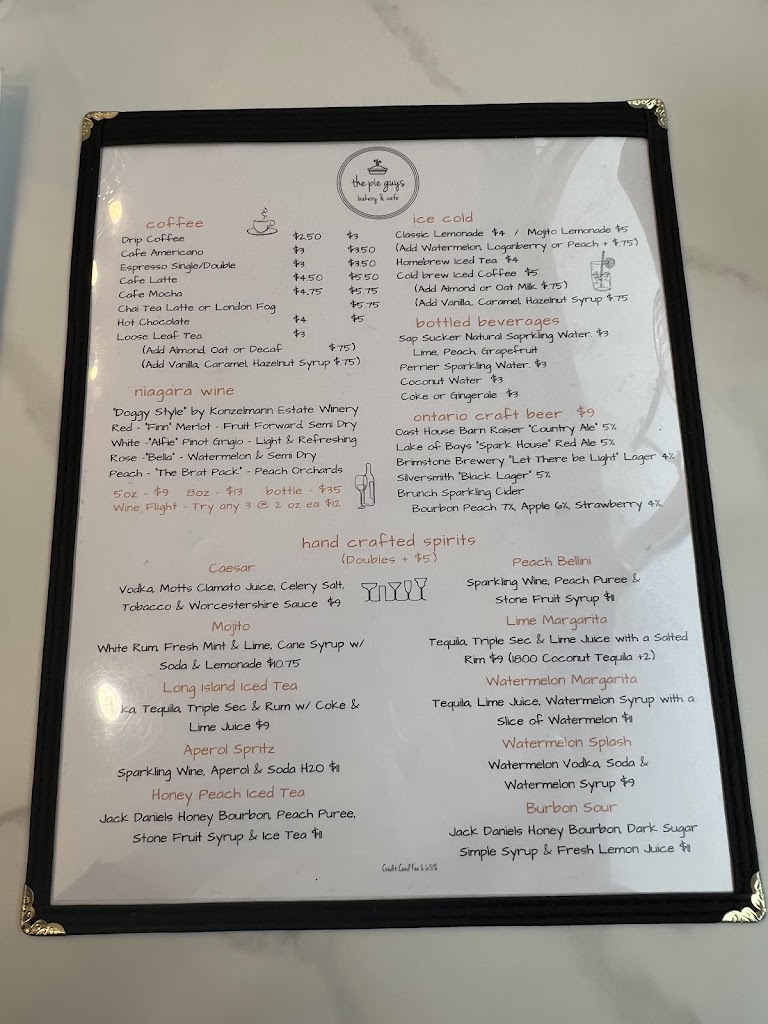 the pie guys
bakery & cafe
coffee
Drip Coffee $2.50 $3
Cafe Americano $3 $3.50
Espresso Single/Double $3 $3.50
Cafe Latte $4.50 $5.50
Cafe Mocha $4.75 $5.75
Chai Tea Latte or London Fog $5.75
Hot Chocolate $4 $5
Loose Leaf Tea $3
(Add Almond, Oat or Decaf $.75)
(Add Vanilla, Caramel, Hazelnut Syrup $.75)
niagara wine
"Doggy Style" by Konzelmann Estate Winery
Red - "Finn" Merlot - Fruit Forward, Semi Dry
White - "Alfie" Pinot Grigio - Light & Refreshing
Rose - "Bella" - Watermelon & Semi Dry
Peach - "The Brat Pack" - Peach Orchards
5oz - $9 8oz - $13 bottle - $35
Wine Flight - Try any 3 @ 2 oz ea $12
ice cold
Classic Lemonade $4 / Mojito Lemonade $5
(Add Watermelon, Loganberry or Peach + $.75)
Homebrew Iced Tea $4
Cold brew Iced Coffee $5
(Add Almond or Oat Milk $.75)
(Add Vanilla, Caramel, Hazelnut Syrup $.75
bottled beverages
Sap Sucker Natural Saprkling Water. $3
Lime, Peach, Grapefruit
Perrier Sparkling Water. $3
Coconut Water $3
Coke or Gingerale $3
ontario craft beer $9
Oast House Barn Raiser "Country Ale" 5%
Lake of Bays "Spark House" Red Ale 5%
Brimstone Brewery "Let There be Light" Lager 4%
Silversmith "Black Lager" 5%
Brunch Sparkling Cider
Bourbon Peach 7%, Apple 6%, Strawberry 4%
hand crafted spirits
(Doubles + $5)
Caesar
Vodka, Motts Clamato Juice, Celery Salt,
Tobacco & Worcestershire Sauce $9
Mojito
White Rum, Fresh Mint & Lime, Cane Syrup w/
Soda & Lemonade $10.75
Long Island Iced Tea
ka Tequila, Triple Sec & Rum w/ Coke &
Lime Juice $9
Aperol Spritz
Sparkling Wine, Aperol & Soda H2O $11
Honey Peach Iced Tea
Jack Daniels Honey Bourbon, Peach Puree,
Stone Fruit Syrup & Ice Tea $11
Peach Bellini
Sparkling Wine, Peach Puree &
Stone Fruit Syrup $11
Lime Margarita
Tequila, Triple Sec & Lime Juice with a Salted
Rim $9 (1800 Coconut Tequila +2)
Watermelon Margarita
Tequila, Lime Juice, Watermelon Syrup with a
Slice of Watermelon $11
Watermelon Splash
Watermelon Vodka, Soda &
Watermelon Syrup $9
Burbon Sour
Jack Daniels Honey Bourbon, Dark Sugar
Simple Syrup & Fresh Lemon Juice $11
Credit Card Fee 2.65%